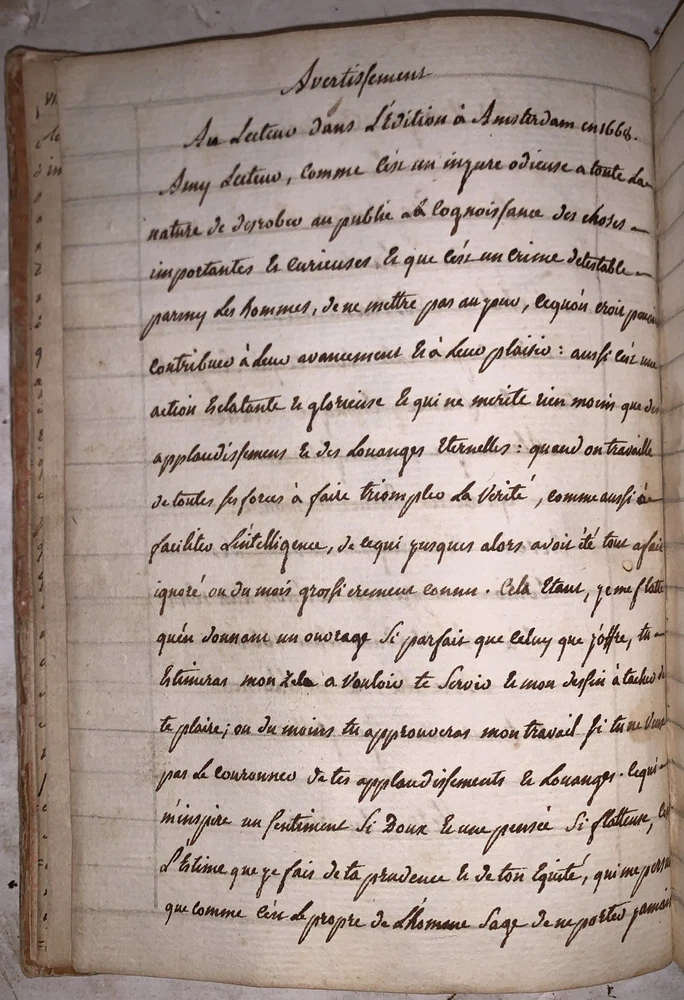 Avertissement
Au Lecteur dans L'Edition à Amsterdam en 1668.
Amy Lecteur, comme c'est un injure odieuse a toute La
nature de desrober au public la Cognoissance des choses
importantes & curieuses & que c'est un crime detestable
parmy Les hommes, de ne mettre pas au jour, ce qu'on croit pouvoir
contribuer à Leur avancement & à Leur plaisir : aussi c'est une
action Esclatante & glorieuse & qui ne merite rien moins que des
applaudissemens & des Louanges Eternelles : quand on travaille
de toutes ses forces à faire triompher La Verité, comme aussi à
faciliter L'intelligence, de ce qui jusques alors avoit été tout a fait
ignoré ou du mois grossierement connu. Cela Etant, je me flatte
qu'en donnant un ouvrage Si parfait que Celuy que j'offre, tu
Estimeras mon Zele a Vouloir te Servir & mon dessin à tacher de
te plaire; ou du moins tu approuveras mon travail si tu ne Veux
pas Le couronner de tes applaudissements & Louanges. Ce qui
m'inspire un sentiment Si Doux & une pensée Si flatteuse, c'est
L'Estime que je fais de ta prudence & de ton Equité, qui me
que comme c'est Le propre de L'homme Sage de ne porter jamais